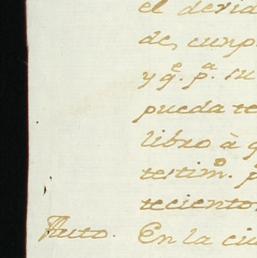 el devid
de, cunp
y q.e p.a su
pueda te
libro à q
testim.o p
tecientos
Auto. En la ciu